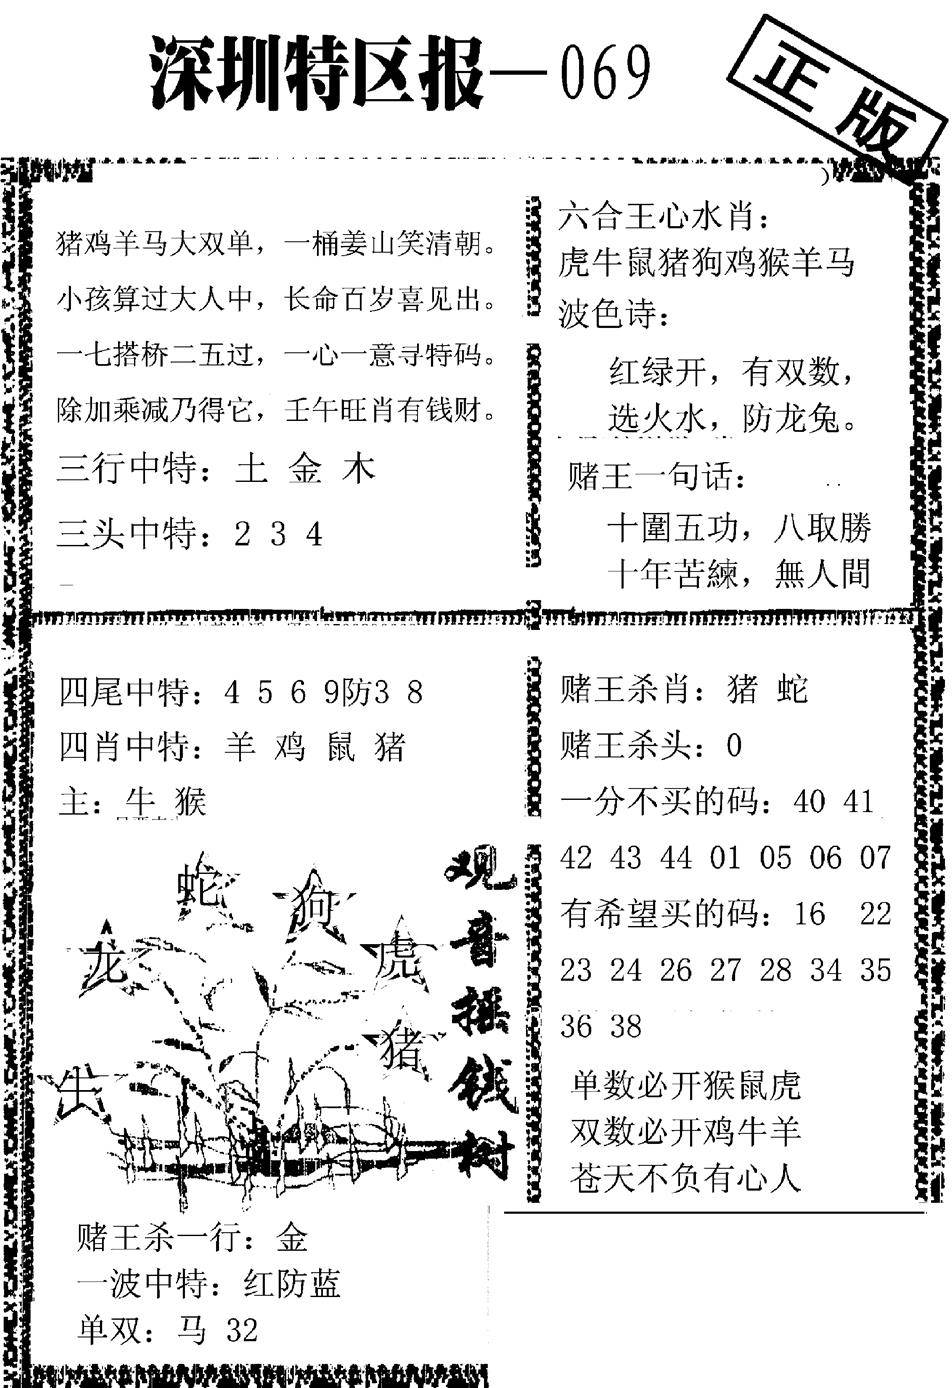 深圳特区报—069
正版
猪鸡羊马大双单，一桶姜山笑清朝。
小孩算过大人中，长命百岁喜见出。
一七搭桥二五过，一心一意寻特码。
除加乘减乃得它，壬午旺肖有钱财。
三行中特：土 金 木
三头中特：2 3 4
六合王心水肖：
虎牛鼠猪狗鸡猴羊马
波色诗：
红绿开，有双数，
选火水，防龙兔。
赌王一句话：
十圍五功，八取勝
十年苦練，無人間
四尾中特：4 5 6 9防3 8
四肖中特：羊 鸡 鼠 猪
主：牛 猴
蛇
狗
龙
虎
猪
牛
观音摇钱树
赌王杀一行：金
一波中特：红防蓝
单双：马 32
赌王杀肖：猪 蛇
赌王杀头：0
一分不买的码：40 41
42 43 44 01 05 06 07
有希望买的码：16 22
23 24 26 27 28 34 35
36 38
单数必开猴鼠虎
双数必开鸡牛羊
苍天不负有心人